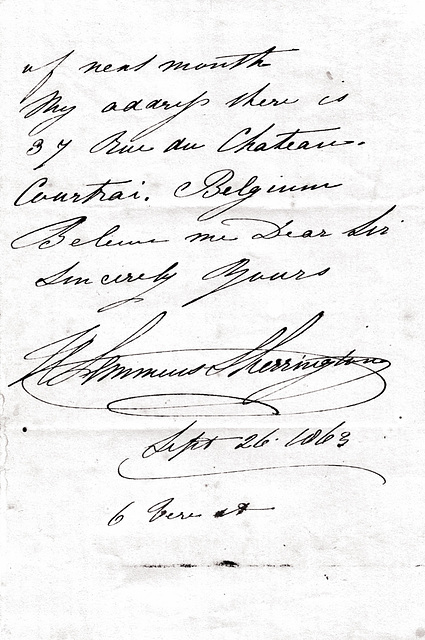 of next month
My address there is
37 Rue du Chateau.
Courtrai. Belgium
Believe me Dear Sir
Sincerely Yours
Lemmens Sherrington
Sept 26. 1863
6 Vere st